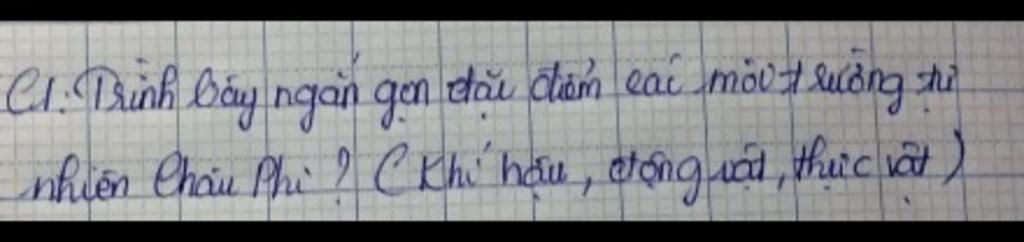 C1: Trình bày ngắn gọn đặc điểm các môi trường tự
nhiên Châu Phi? (Khí hậu, động vật, thực vật)